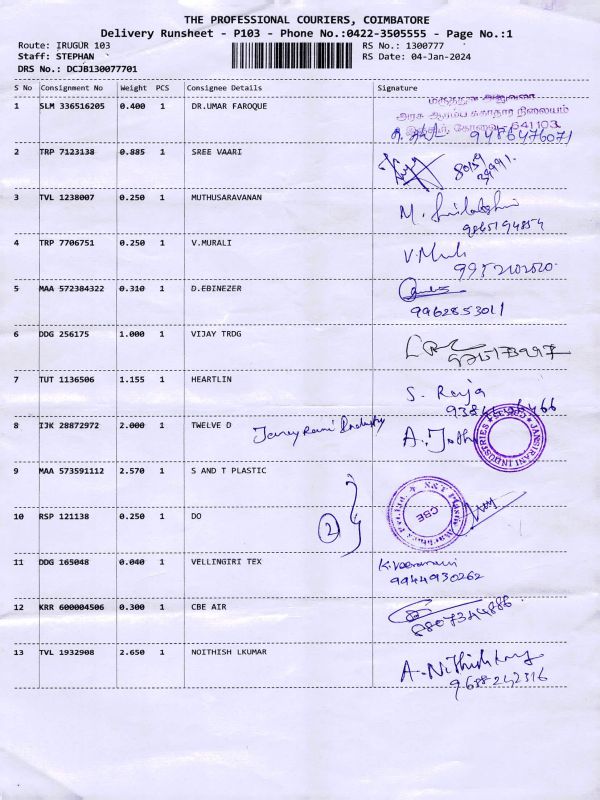 THE PROFESSIONAL COURIERS, COIMBATORE
Delivery Runsheet - P103 - Phone No.:0422-3505555 - Page No.:1
Route: IRUGUR 103 RS No.: 1300777
Staff: STEPHAN RS Date: 04-Jan-2024
DRS No.: DCJB130077701
S No Consignment No Weight PCS Consignee Details Signature
மருத்துவ அலுவலர்
அரசு ஆரம்ப சுகாதார நிலையம்
1 SLM 336516205 0.400 1 DR.UMAR FAROQUE
இருகூர், கோவை - 641 103
9486476071
2 TRP 7123138 0.885 1 SREE VAARI
3 TVL 1238007 0.250 1 MUTHUSARAVANAN M.
9865194854
4 TRP 7706751 0.250 1 V.MURALI V.Murali
9952102020
5 MAA 572384322 0.310 1 D.EBINEZER
9962853011
6 DDG 256175 1.000 1 VIJAY TRDG
7 TUT 1136506 1.155 1 HEARTLIN S. Raja
8 IJK 28872972 2.000 1 TWELVE D Jansy Rani Industry A. Jothi
JANSIRANI INDUSTRIES
9 MAA 573591112 2.570 1 S AND T PLASTIC
S&T Plastic Machines Pvt. Ltd.
CBE
10 RSP 121138 0.250 1 DO 2
11 DDG 165048 0.040 1 VELLINGIRI TEX K.Veeramani
9944930262
12 KRR 600004506 0.300 1 CBE AIR
8807344886
13 TVL 1932908 2.650 1 NOITHISH LKUMAR A.Nithishkumar
9688242316